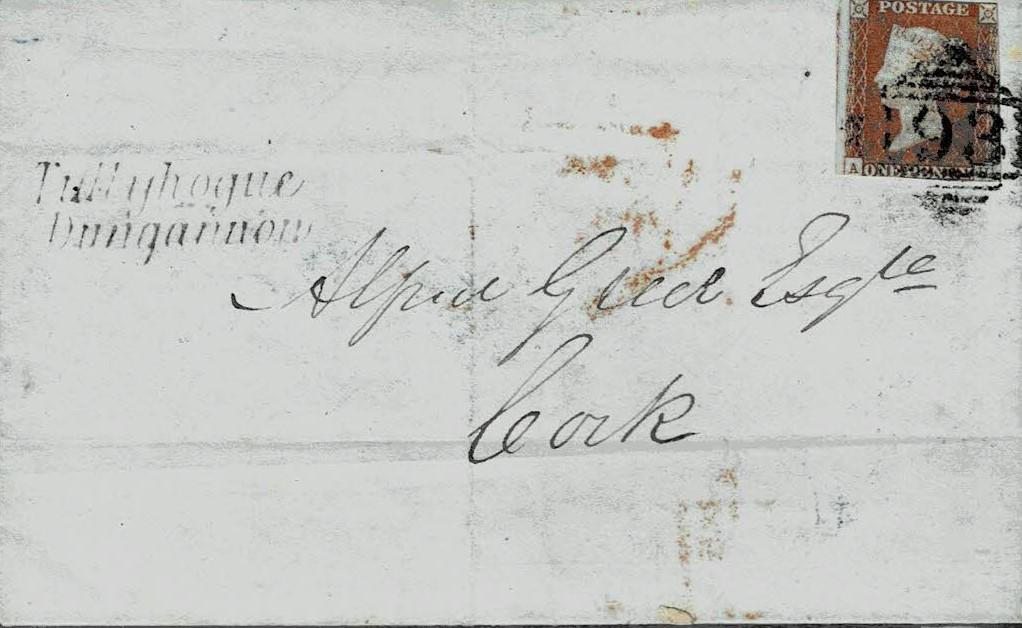 POSTAGE
A ONE PENNY
193
Tullyhogue
Dungannon
Esqre
Cork